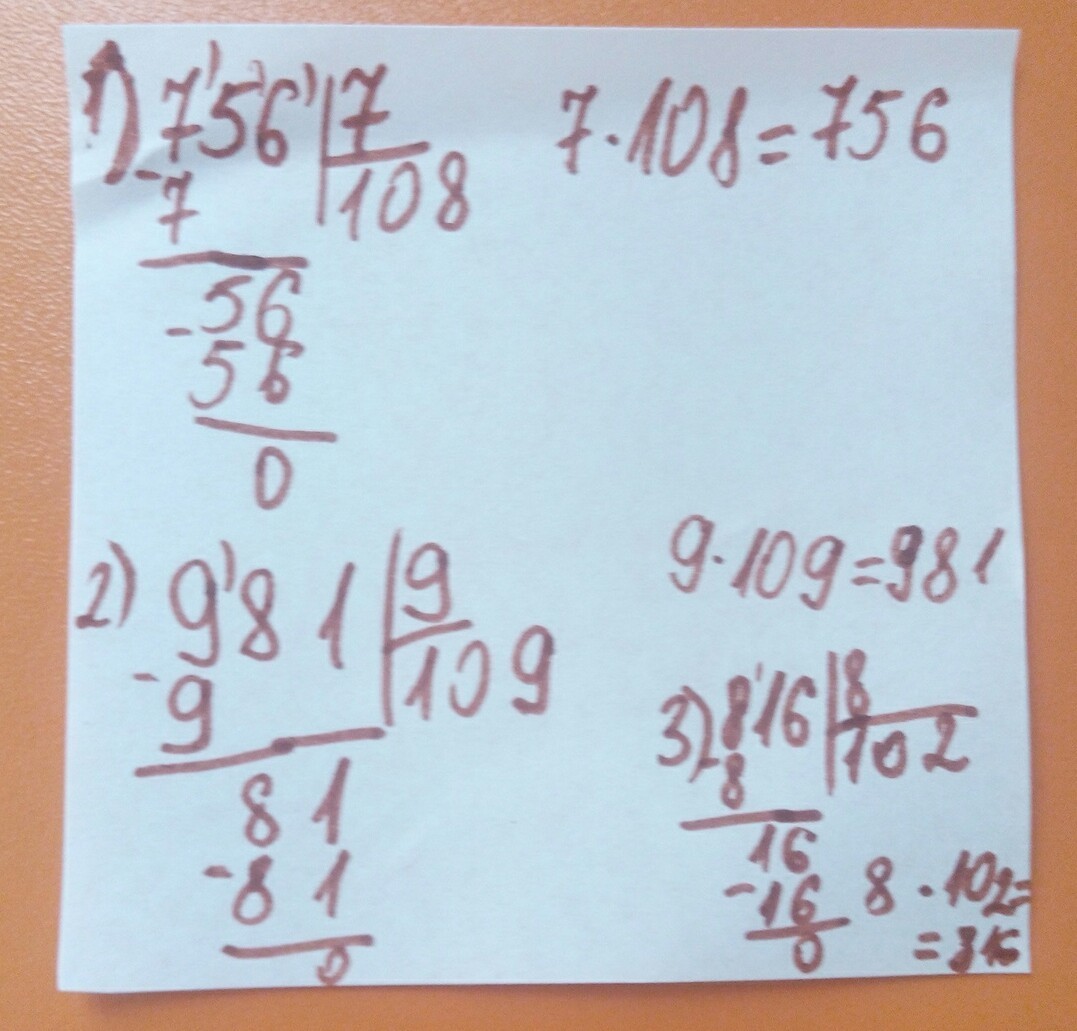 1) 756 | 7    7·108=756
-7    108
-56
56
0
2) 981 | 9    9·109=981
-9    109
81
-81
0
3) 816 | 8
-8    102
16
-16    8·102=
0    =816